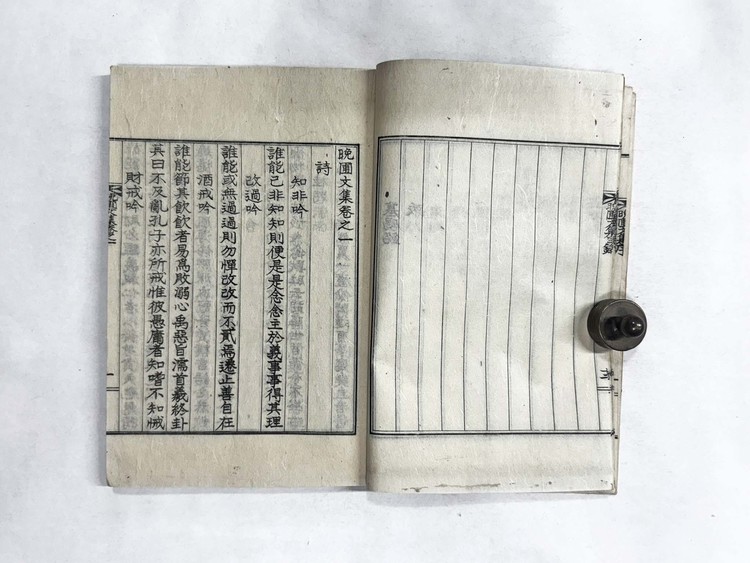 晩圃文集卷之一
詩
知非吟
誰能己非知知則便是是念念主於義事事得其理
改過吟
誰能或無過過則勿憚改改而不貳焉遷止善自在
酒戒吟
誰能節其飮飮者易爲敗溺心禹惡旨濡首羲終卦
其曰不及亂孔子亦所戒惟彼愚庸者知嗜不知戒
財戒吟